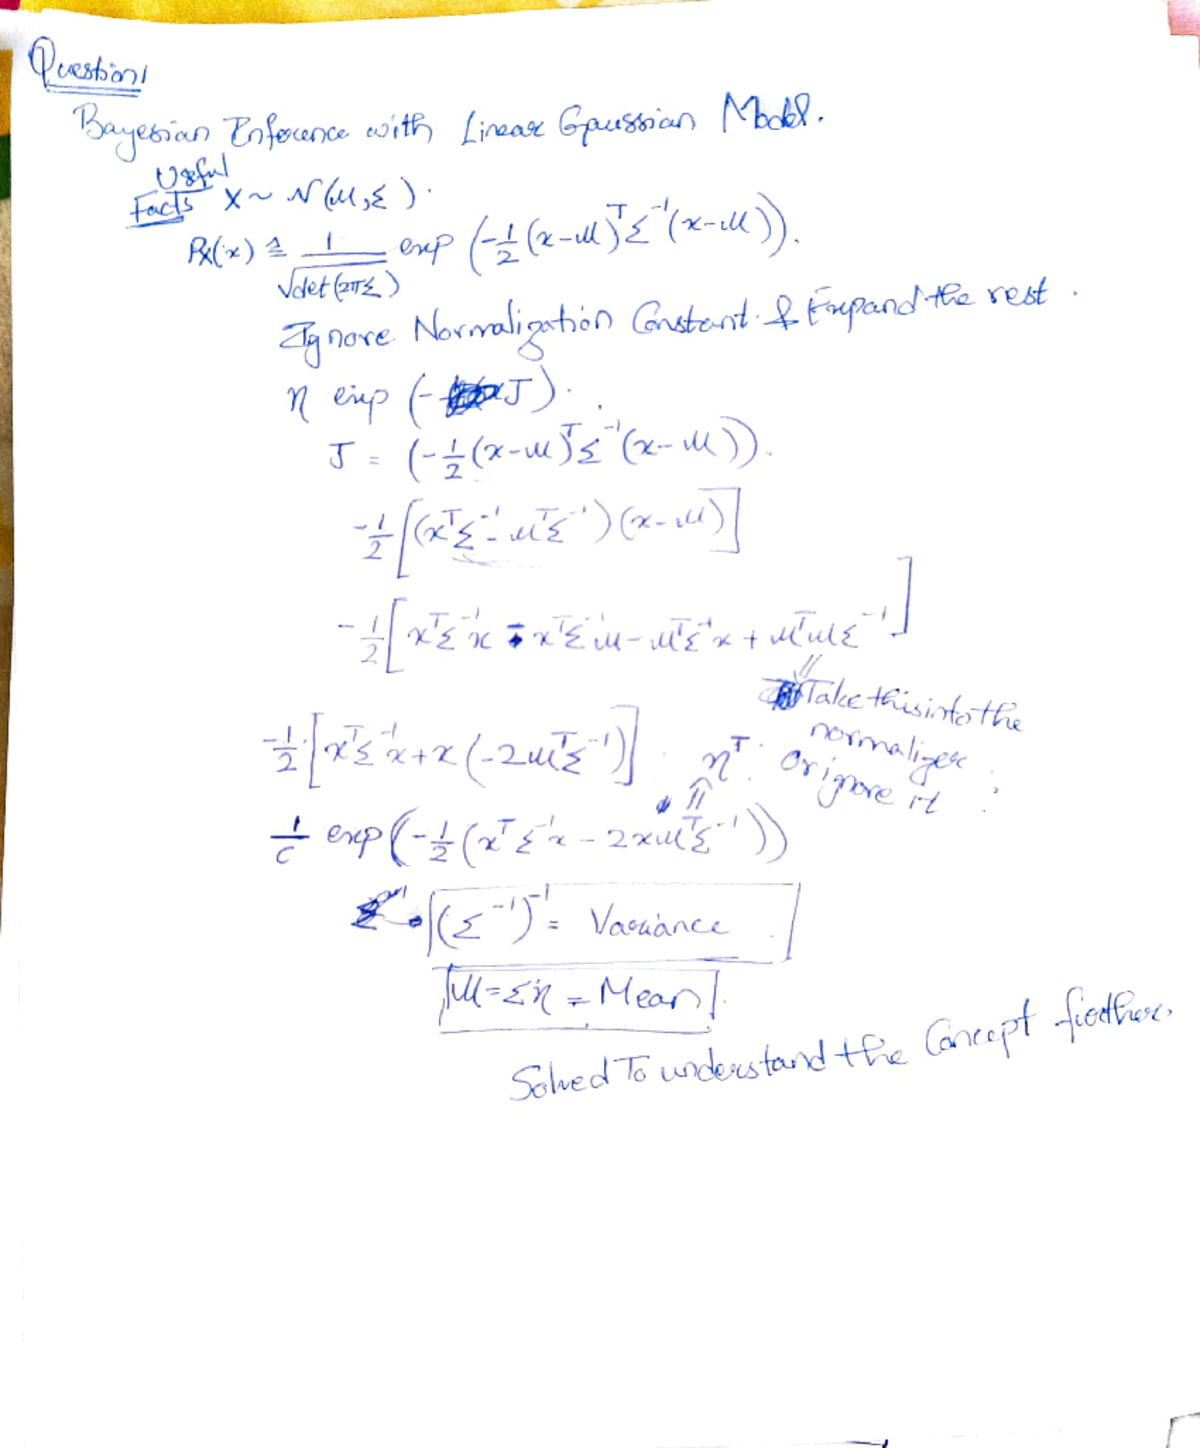 Question 1
Bayesian Inference with Linear Gaussian Model.
Useful
Facts X ~ N(μ, Σ).
Px(x) ≜ 1/√det(2πΣ) exp (-1/2 (x-μ)ᵀ Σ⁻¹ (x-μ)).
Ignore Normalization Constant & Expand the rest.
η exp (- J).
J = (-1/2 (x-μ)ᵀ Σ⁻¹ (x-μ)).
-1/2 [(xᵀΣ⁻¹ - μᵀΣ⁻¹)(x-μ)]
-1/2 [xᵀΣ⁻¹x - xᵀΣ⁻¹μ - μᵀΣ⁻¹x + μᵀμΣ⁻¹]
Take this into the
normalizer
or ignore it
-1/2 [xᵀΣ⁻¹x + x(-2μᵀΣ⁻¹)] ηᵀ
1/C exp(-1/2 (xᵀΣ⁻¹x - 2xμᵀΣ⁻¹))
(Σ⁻¹)⁻¹ = Variance
μ = Ση = Mean
Solved To understand the Concept further.